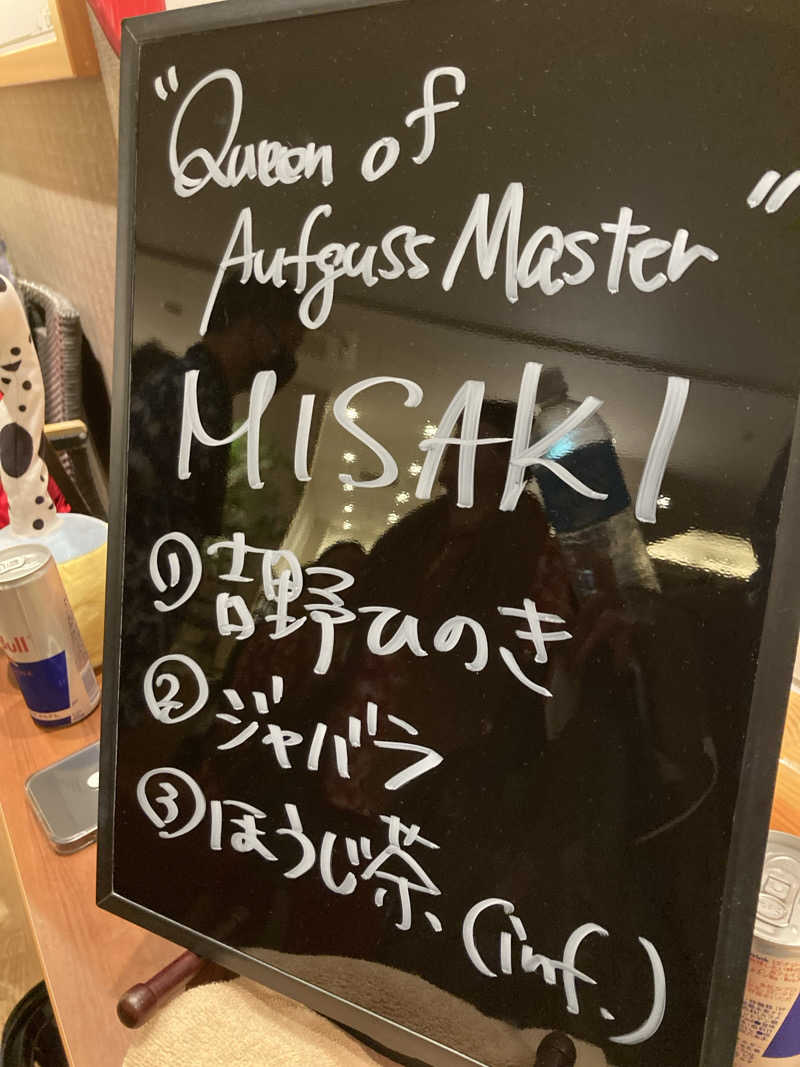 "Queen of
Aufguss Master"
MISAKI
① 吉野ひのき
② ジャバラ
③ ほうじ茶 (inf.)
Bull